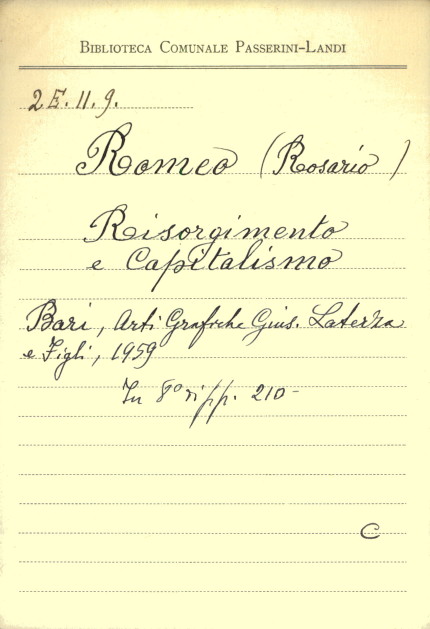 Biblioteca Comunale Passerini-Landi
2E.11.9.
Romeo (Rosario)
Risorgimento
e Capitalismo
Bari, Arti Grafiche Gius. Laterza
e Figli, 1959
In 8° pp. 210-
C